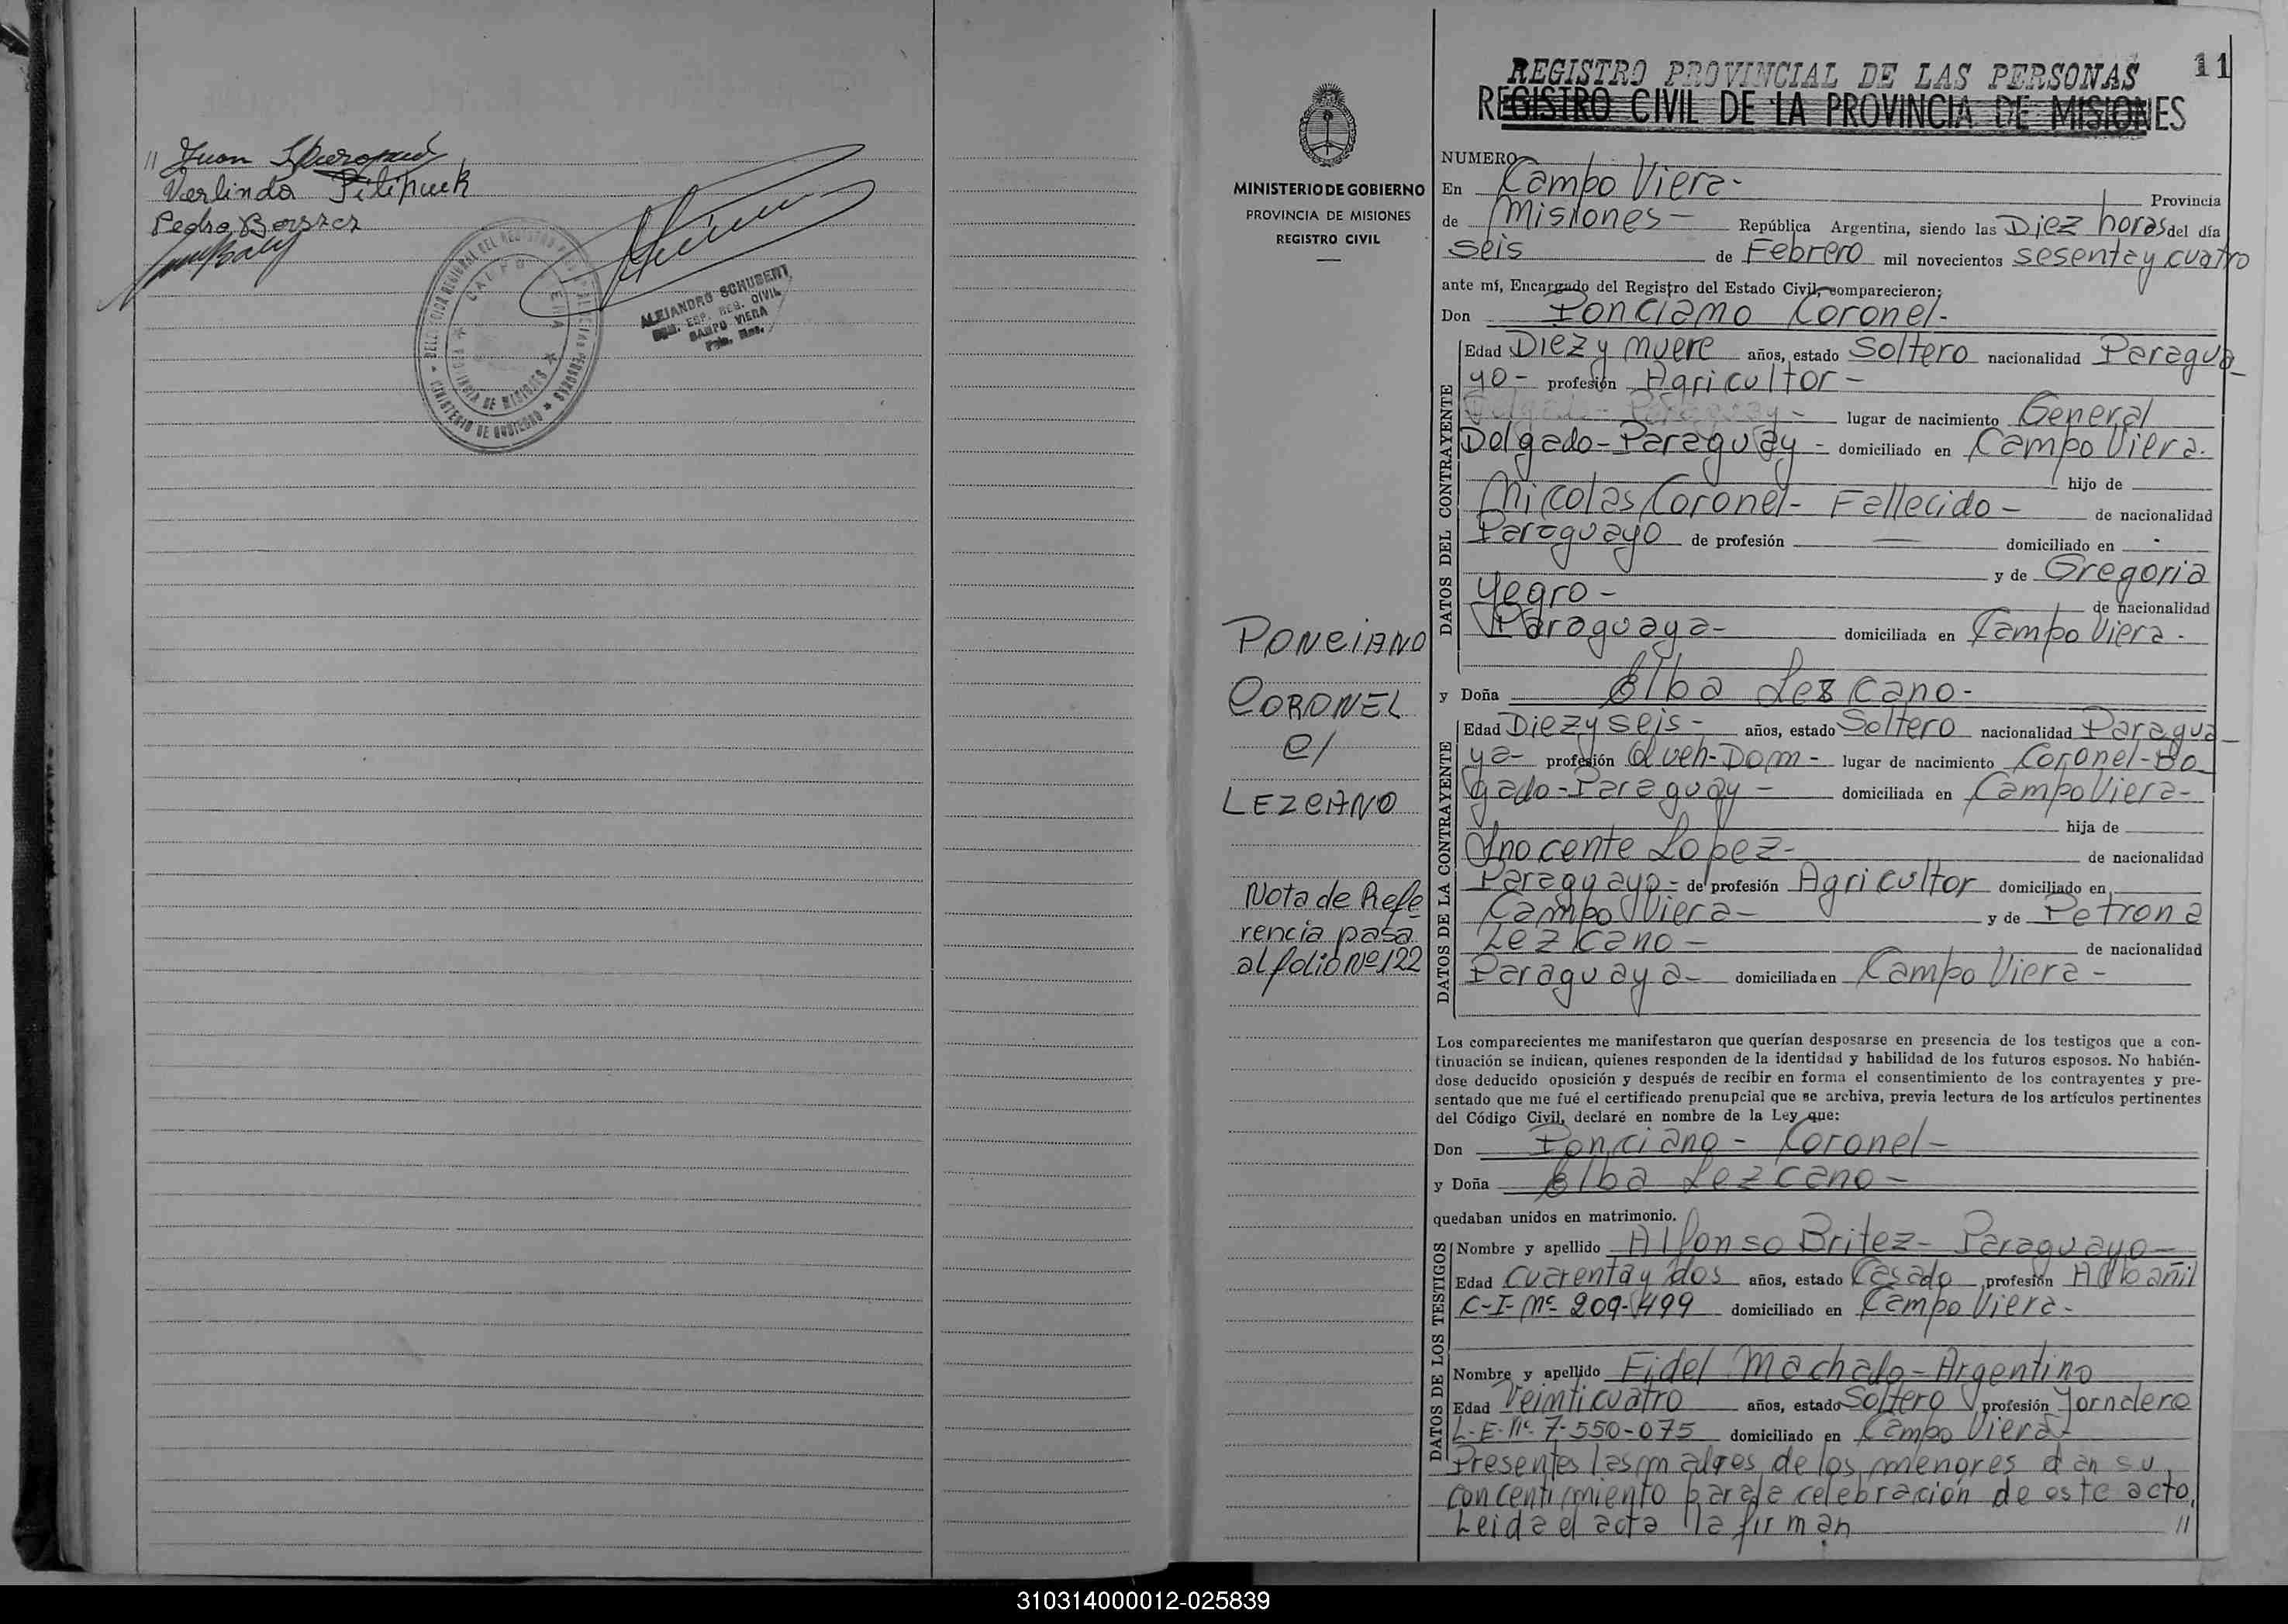 // Juan
Verlinda Pilipiuk
Pedro Borszcz
ALEJANDRO SCHUBERT
REG. CIVIL
CAMPO VIERA
Pcia. Mnes.
REGISTRO PROVINCIAL DE LAS PERSONAS 11
REGISTRO CIVIL DE LA PROVINCIA DE MISIONES
MINISTERIO DE GOBIERNO
PROVINCIA DE MISIONES
REGISTRO CIVIL
PONCIANO
CORONEL
c/
LEZCANO
Nota de Refe
rencia pasa
al folio Nº 122
NUMERO
En Campo Viera- Provincia
de Misiones- República Argentina, siendo las Diez horas del día
seis de Febrero mil novecientos sesenta y cuatro
ante mí, Encargado del Registro del Estado Civil, comparecieron:
Don Ponciano Coronel-
DATOS DEL CONTRAYENTE
Edad Diez y nueve años, estado Soltero nacionalidad Paragua
yo- profesión Agricultor-
lugar de nacimiento General
Delgado-Paraguay- domiciliado en Campo Viera.
hijo de
Nicolas Coronel- Fallecido- de nacionalidad
Paraguayo de profesión — domiciliado en -
y de Gregoria
Yegro- de nacionalidad
Paraguaya- domiciliada en Campo Viera-
y Doña Elba Lezcano-
DATOS DE LA CONTRAYENTE
Edad Diez y seis- años, estado Soltero nacionalidad Paragua
ya- profesión Queh-Dom- lugar de nacimiento Coronel-Bo
gado-Paraguay- domiciliada en Campo Viera-
hija de
Inocente Lopez- de nacionalidad
Paraguayo- de profesión Agricultor domiciliado en
Campo Viera- y de Petrona
Lezcano- de nacionalidad
Paraguaya- domiciliada en Campo Viera-
Los comparecientes me manifestaron que querían desposarse en presencia de los testigos que a con-
tinuación se indican, quienes responden de la identidad y habilidad de los futuros esposos. No habién-
dose deducido oposición y después de recibir en forma el consentimiento de los contrayentes y pre-
sentado que me fué el certificado prenupcial que se archiva, previa lectura de los artículos pertinentes
del Código Civil, declaré en nombre de la Ley que:
Don Ponciano- Coronel-
y Doña Elba Lezcano-
quedaban unidos en matrimonio.
DATOS DE LOS TESTIGOS
Nombre y apellido Alfonso Britez- Paraguayo-
Edad Cuarenta y dos años, estado Casado profesión Albañil
C-I- Nº 209-499 domiciliado en Campo Viera-
Nombre y apellido Fidel Machado-Argentino
Edad Veinticuatro años, estado Soltero profesión Jornalero
L-E-Nº 7-550-075 domiciliado en Campo Viera-
Presentes las madres de los menores dan su
concentimiento para la celebración de este acto,
Leida el acta la firman //
310314000012-025839